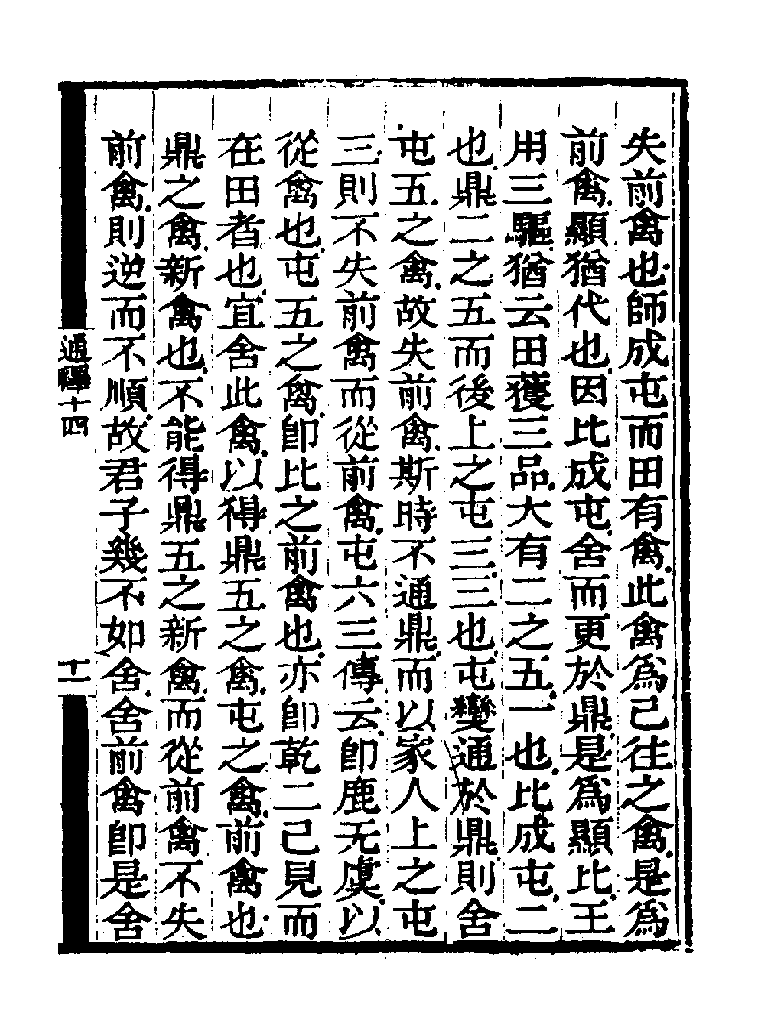 失前禽也師成屯而田有禽此禽為已往之禽是為
前禽顯猶代也因比成屯舍而更於鼎是為顯比王
用三驅猶云田獲三品大有二之五一也比成屯二
也鼎二之五而後上之屯三三也屯變通於鼎則舍
屯五之禽故失前禽斯時不通鼎而以家人上之屯
三則不失前禽而從前禽屯六三傳云卽鹿无虞以
從禽也屯五之禽卽比之前禽也亦卽乾二已見而
在田者也宜舍此禽以得鼎五之禽屯之禽前禽也
鼎之禽新禽也不能得鼎五之新禽而從前禽不失
前禽則逆而不順故君子幾不如舍舍前禽卽是舍
通釋十四
十一